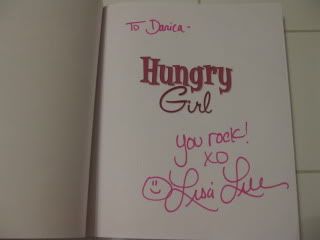 To Danica-
Hungry
Girl
you rock!
XO
Lisa Lille